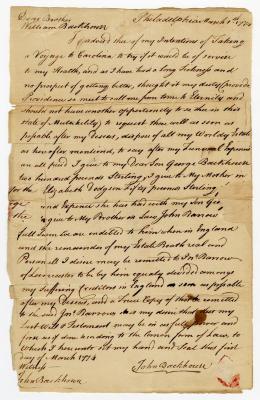 Dear Brother Philadelphia March 1st 1774
William Backhouse
I advised thee of my Intentions of Taking
a Voyage to Carolina to try if it would be of service
to my Health, and as I have had a long Sickness and
no prospect of getting better, thought it my duty (provided
Providence is meet to call me from time to Eternity and
should not have another opportunity to do this in this
state of Mutability) to request thee will as soon as
possable after my Decease, dispose of all my Worldly Estate
as hereafter mentioned, to say after my Funeral Expences
are all paid I give to my Dear Son George Backhouse
two hundred pounds Sterling, I give to My Mother in
for the Elizabeth Dodgson Fifty pounds Sterling
and Expence she has had with my Son Geo.
The I give to My Brother in Law John Barrow
full Sum he are endetted to him when in England
and the remainder of my Estate Both real and
Personall I desire may be remitted to Jno. Barrow
of Lancaster to be by him equaly divided amongst
my Suffering Creditors in England as soon as possable
after my Decease, and a True Copy of this be remitted
to the said Jno. Barrow as my desire that this my
Last Will & Testament may be in as full power and
force as if done according to the Common form of Law, to
Which I have unto set my hand and Seal this first
day of March 1774
Witness John Backhouse
John Backhouse